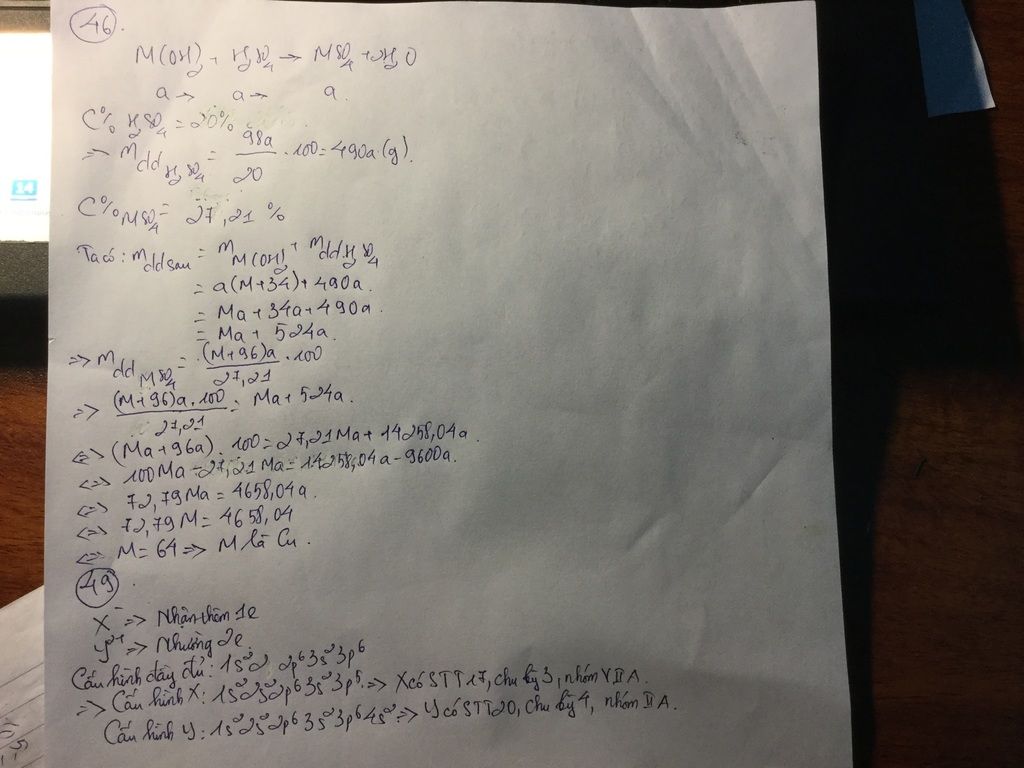 46.
M(OH)₂ + H₂SO₄ → MSO₄ + 2H₂O
a → a → a.
C% H₂SO₄ = 20%
=> m dd H₂SO₄ = 98a/20 . 100 = 490a (g).
C% MSO₄ = 27,21 %
Ta có: m dd sau = m M(OH)₂ + m dd H₂SO₄
= a(M+34) + 490a.
= Ma + 34a + 490a.
= Ma + 524a.
=> m dd MSO₄ = (M+96)a/27,21 . 100
=> (M+96)a.100/27,21 = Ma + 524a.
<=> (Ma+96a).100 = 27,21Ma + 14258,04a.
<=> 100Ma - 27,21Ma = 14258,04a - 9600a.
<=> 72,79Ma = 4658,04a.
<=> 72,79M = 4658,04
<=> M = 64 => M là Cu.
49.
X⁻ => Nhận thêm 1e
Y²⁺ => Nhường 2e
Cấu hình đầy đủ: 1s²2 2p⁶3s²3p⁶
=> Cấu hình X: 1s²2s²2p⁶3s²3p⁵ => X có STT 17, chu kỳ 3, nhóm VIIA.
Cấu hình Y: 1s²2s²2p⁶3s²3p⁶4s² => Y có STT 20, chu kỳ 4, nhóm IIA.
14